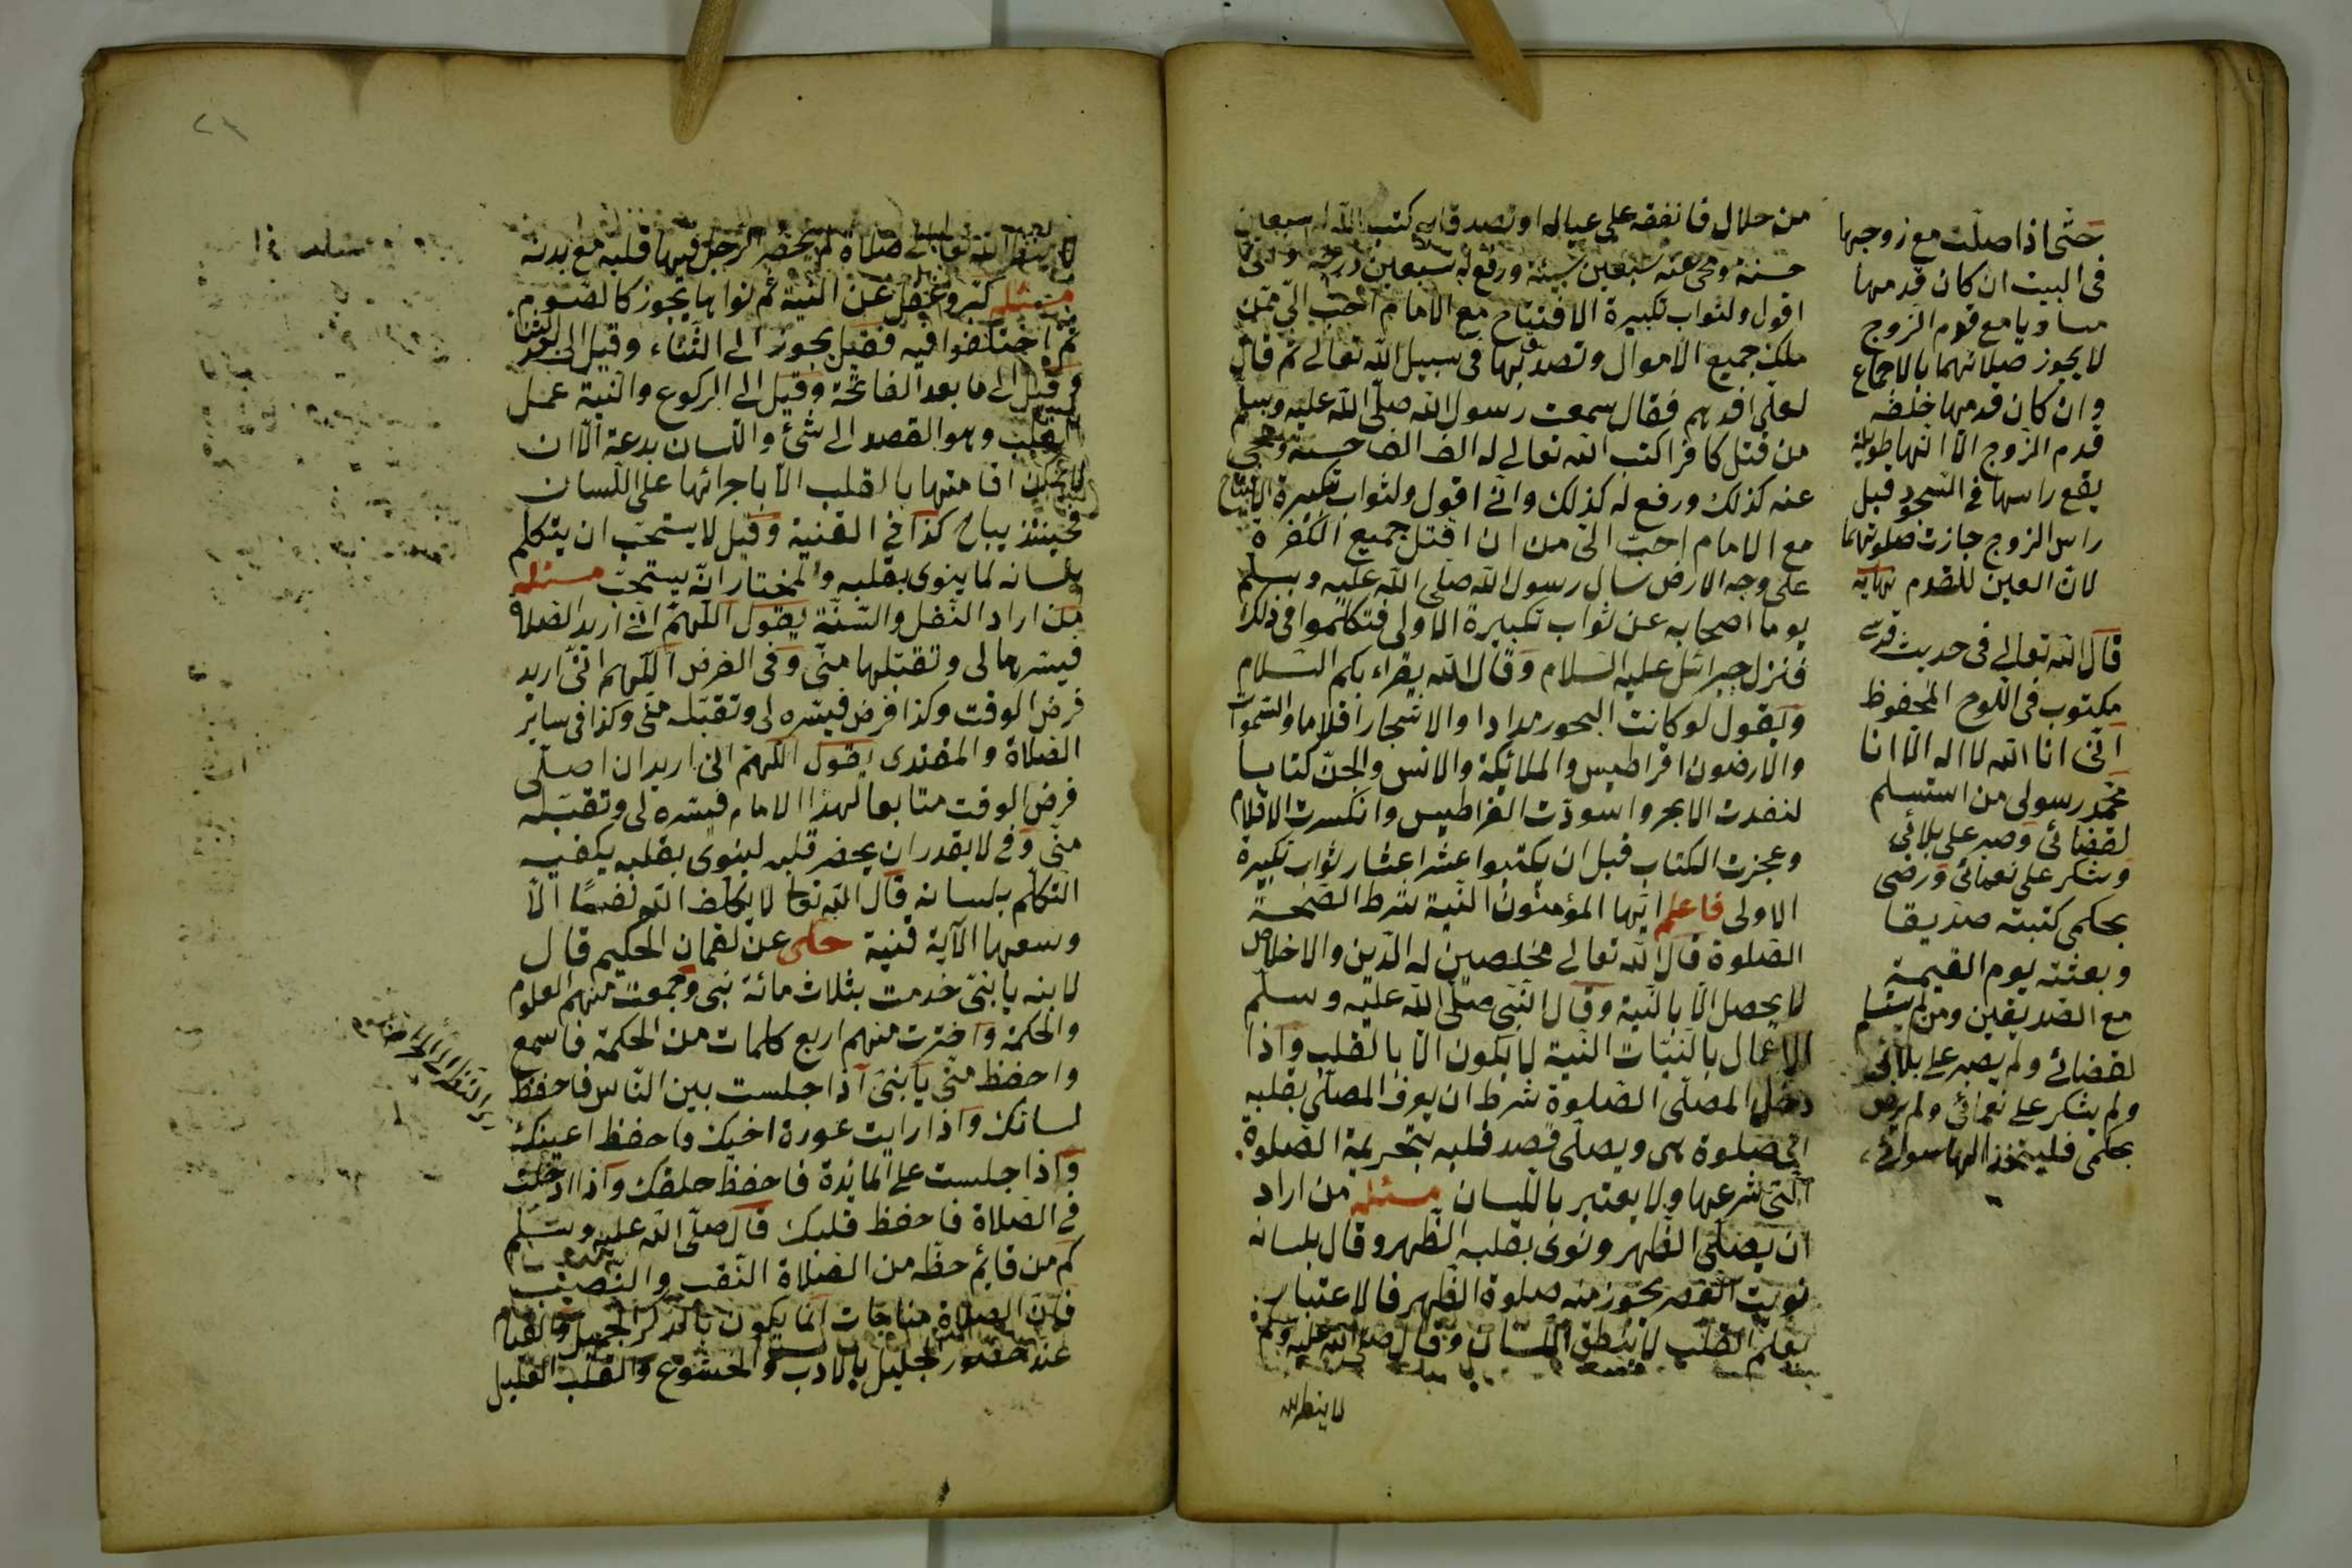 من حلال فانفقه على عياله او تصدق به كتب الله له سبعين
حسنة ومحى عنه سبعين سيئة ورفع له سبعين درجة وانى
اقول ولثواب تكبيرة الافتتاح مع الامام احب الىّ ممن
ملك جميع الاموال وتصدق بها فى سبيل الله تعالى ثم قال
لعلى اقدهم فقال سمعت رسول الله صلى الله عليه وسلم
من قتل كافرا كتب الله تعالى له الف الف حسنة ومحى
عنه كذلك ورفع له كذلك وانى اقول ولثواب تكبيرة الافتتاح
مع الامام احب الىّ من ان اقتل جميع الكفرة
على وجه الارض سال رسول الله صلى الله عليه وسلم
يوما اصحابه عن ثواب تكبيرة الاولى فتكلموا فى ذلك
فنزل جبرائل عليه السلام وقال الله يقراء بكم السلام
ويقول لو كانت البحور مدادا والاشجار اقلاما والسموات
والارضون اقراطيس والملائكة والانس والجن كتابا
لنفدت الابحر واسودت القراطيس وانكسرت الاقلام
وعجزت الكتاب قبل ان يكتبوا عشر اعشار ثواب تكبيرة
الاولى فاعلم ايها المؤمنون النية شرط الصحة
الصلوة قال الله تعالى مخلصين له الدين والاخلاص
لا يحصل الا بالنية وقال النبى صلى الله عليه وسلم
الاعمال بالنيات النية لا يكون الا بالقلب واذا
دخل المصلى الصلوة شرط ان يعرف المصلى بقلبه
اىّ صلوة هى ويصلى قصد قلبه بتحريمة الصلوة
التى شرعها ولا يعتبر باللسان مسئله من اراد
ان يصلى الظهر ونوى بقلبه الظهر وقال بلسانه
نويت العصر يجوز منه صلوة الظهر فالاعتبار
بعلم القلب لا بنطق اللسان وقال صلى الله عليه وسلم
لا ينظر الله
حتى اذا صلت مع زوجها
فى البيت ان كان قدمها
مساويا مع قدم الزوج
لا يجوز صلاتهما بالاجماع
وان كان قدمها خلف
قدم الزوج الا انها طويلة
يقع راسها فى السجود قبل
راس الزوج جازت صلوتهما
لان العين للقدم نهايه
قال الله تعالى فى حديث قدسى
مكتوب فى اللوح المحفوظ
انى انا الله لا اله الا انا
محمد رسولى من استسلم
لقضائى وصبر على بلائى
وشكر على نعمائى ورضى
بحكمى كتبته صديقا
وبعثته يوم القيمة
مع الصديقين ومن لم يستسلم
لقضائى ولم يصبر على بلائى
ولم يشكر على نعمائى ولم يرض
بحكمى فليتخذ الها سوائى
لا ينظر الله تعالى الى صلاة لم يحضر الرجل فيها قلبه مع بدنه
مسئله كبر وغفل عن النية ثم نواها يجوز كالصوم
ثم اختلفوا فيه فقيل يجوز الى الثناء وقيل الى
وقيل الى ما بعد الفاتحة وقيل الى الركوع والنية عمل
القلب وهو القصد الى شئ واللسان بدعة الا ان
لا يمكن اقامتها بالقلب الا باجرائها على اللسان
فحينئذ يباح كذا فى القنية وقيل لا يستحب ان يتكلم
بلسانه لما ينوى بقلبه والمختار انه يستحب مسئله
من اراد النفل والسنة يقول اللهم انى اريد الصلاة
فيسرها لى وتقبلها منى وفى الفرض اللهم انى اريد
فرض الوقت وكذا فرض فيسره لى وتقبله منى وكذا فى سائر
الصلاة والمقتدى يقول اللهم انى اريد ان اصلى
فرض الوقت متابعا لهذا الامام فيسره لى وتقبله
منى وفى لا يقدر ان يحضر قلبه لينوى بقلبه يكفيه
التكلم بلسانه قال الله تعا لا يكلف الله نفسا الا
وسعها الآية قنية حكى عن لقمان الحكيم قال
لابنه يا بنى خدمت بثلاث مائة نبى وجمعت منهم العلوم
والحكمة واخترت منهم اربع كلمات من الحكمة فاسمع
واحفظ منى يا بنى اذا جلست بين الناس فاحفظ
لسانك واذا رايت عورة اخيك فاحفظ اعينك
واذا جلست على المائدة فاحفظ حلقك واذا ادخلت
فى الصلاة فاحفظ قلبك قال صلى الله عليه وسلم
كم من قائم حظه من الصلاة التعب والنصب
فان الصلاة مناجات انما يكون بالذكر الجميل والقيام
عند حضور الجليل بالادب والخشوع والقلب القليل